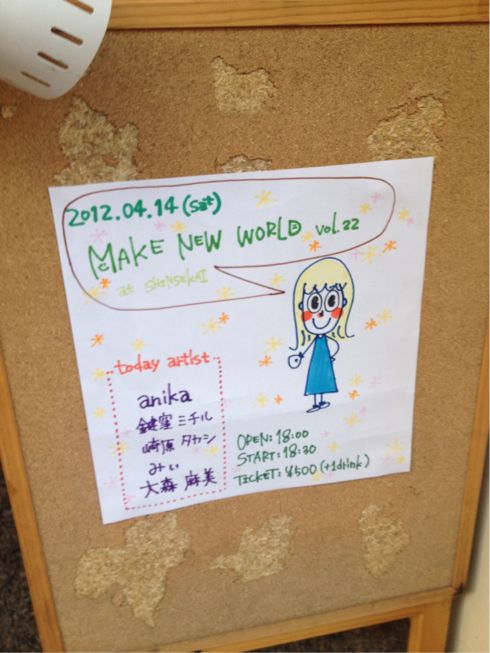 2012.04.14 (sat)
MAKE NEW WORLD vol.22
at SHINSEKAI
today artist
anika
鍵窪 ミチル
崎原 タカシ
みぃ
大森 麻美
OPEN: 18:00
START: 18:30
TICKET: ¥500 (+1drink)